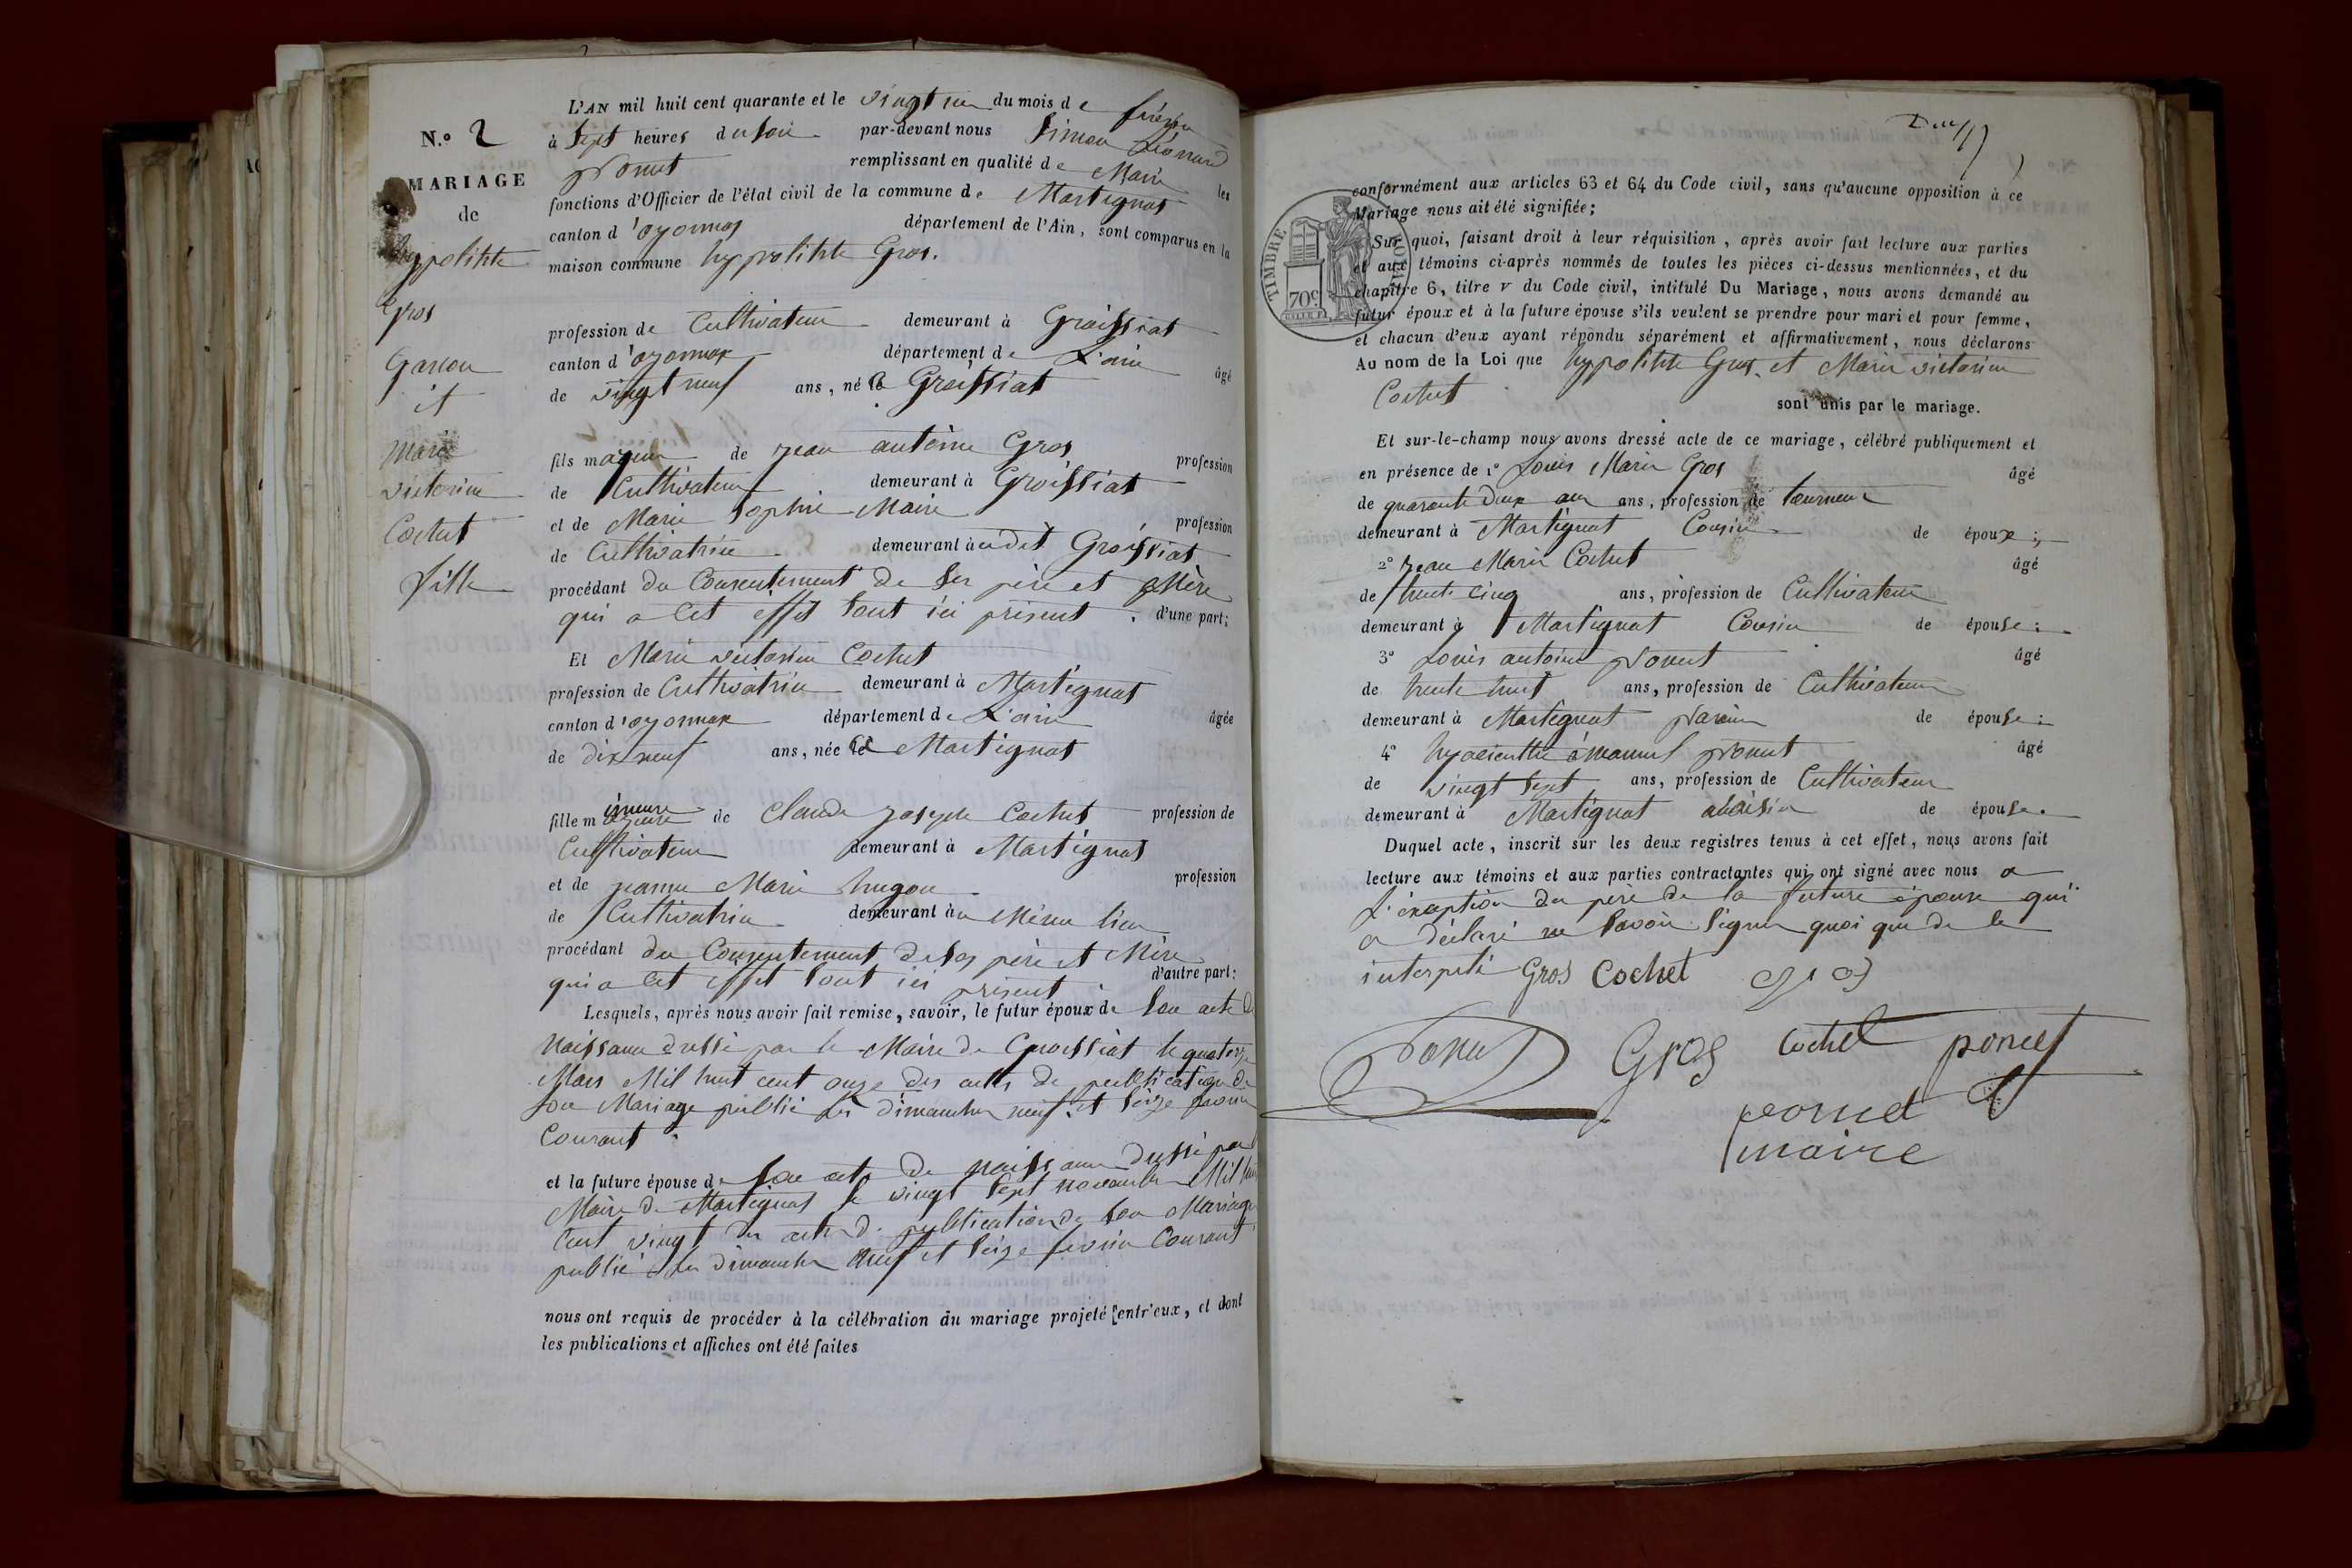 N.o 2
MARIAGE
de
hyppolitte
Gros
Garcon
et
Marie
victorine
Cochet
fille
L'AN mil huit cent quarante et le vingt un du mois de février
à sept heures du soir par-devant nous Simon Léonard
Poncet remplissant en qualité de Maire les
fonctions d'Officier de l'état civil de la commune de Martignat
canton d'oyonnax département de l'Ain, sont comparus en la
maison commune hyppolitte Gros.
profession de Cultivateur demeurant à Groissiat
canton d'oyonnax département de L'ain âgé
de vingt neuf ans, né à Groissiat
fils majeur de jean antoine Gros profession
de Cultivateur demeurant à Groissiat
et de Marie Sophie Maire profession
de Cultivatrice demeurant audit Groissiat
procédant du Consentement de ses père et Mère
qui a cet effet sont ici présent. d'une part;
Et Marie victorine Cochet
profession de Cultivatrice demeurant à Martignat
canton d'oyonnax département de L'ain âgée
de dix neuf ans, née à Martignat
fille mineure de Claude joseph Cochet profession de
Cultivateur demeurant à Martignat
et de jeanne Marie hugon profession
de Cultivatrice demeurant au Même lieu
procédant du Consentement de ses père et Mère
qui a cet effet sont ici présent d'autre part:
Lesquels, après nous avoir fait remise, savoir, le futur époux de son acte de
Naissance dressé par le Maire de Groissiat le quatorze
Mars Mil huit cent onze des actes de publication de
son Mariage publié les dimanches neuf et seize février
Courant.
et la future épouse de son acte de naissance dressé par
Maire de Martignat le vingt sept novembre Mil huit
Cent vingt des actes de publication de son Mariage
publié les dimanches neuf et seize fevrier Courant.
nous ont requis de procéder à la célébration du mariage projeté entr'eux, et dont
les publications et affiches ont été faites
conformément aux articles 63 et 64 du Code civil, sans qu'aucune opposition à ce
Mariage nous ait été signifiée;
TIMBRE ROYAL
70c
Sur quoi, faisant droit à leur réquisition, après avoir fait lecture aux parties
et aux témoins ci-après nommés de toutes les pièces ci-dessus mentionnées, et du
chapitre 6, titre v du Code civil, intitulé Du Mariage, nous avons demandé au
futur époux et à la future épouse s'ils veulent se prendre pour mari et pour femme,
et chacun d'eux ayant répondu séparément et affirmativement, nous déclarons
Au nom de la Loi que hyppolitte Gros et Marie victorine
Cochet sont unis par le mariage.
Et sur-le-champ nous avons dressé acte de ce mariage, célébré publiquement et
en présence de 1° Louis Marie Gros âgé
de quarante deux ans ans, profession de tourneur
demeurant à Martignat Cousin de époux;
2° jean Marie Cochet âgé
de trente cinq ans, profession de Cultivateur
demeurant à Martignat Cousin de épouse:
3° Louis antoine Poncet âgé
de trente huit ans, profession de Cultivateur
demeurant à Martignat Parain de épouse:
4° hyacienthe émanuel Poncet âgé
de vingt sept ans, profession de Cultivateur
demeurant à Martignat de épouse.
Duquel acte, inscrit sur les deux registres tenus à cet effet, nous avons fait
lecture aux témoins et aux parties contractantes qui ont signé avec nous a
L'éxeption du père de la future épouse qui
a déclaré ne savoir signer quoi que de ce
interpelé Gros Cochet
Poncet Gros Cochet poncet
poncet
maire